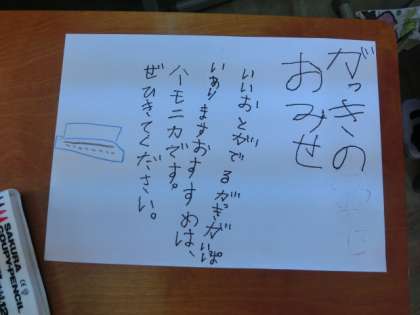 がっきの
おみせ
いいおとがでるがっきがいっぱ
いありますおすすめは、
ハーモニカです。
ぜひきてください。
SAKURA
COUPY-PENCIL